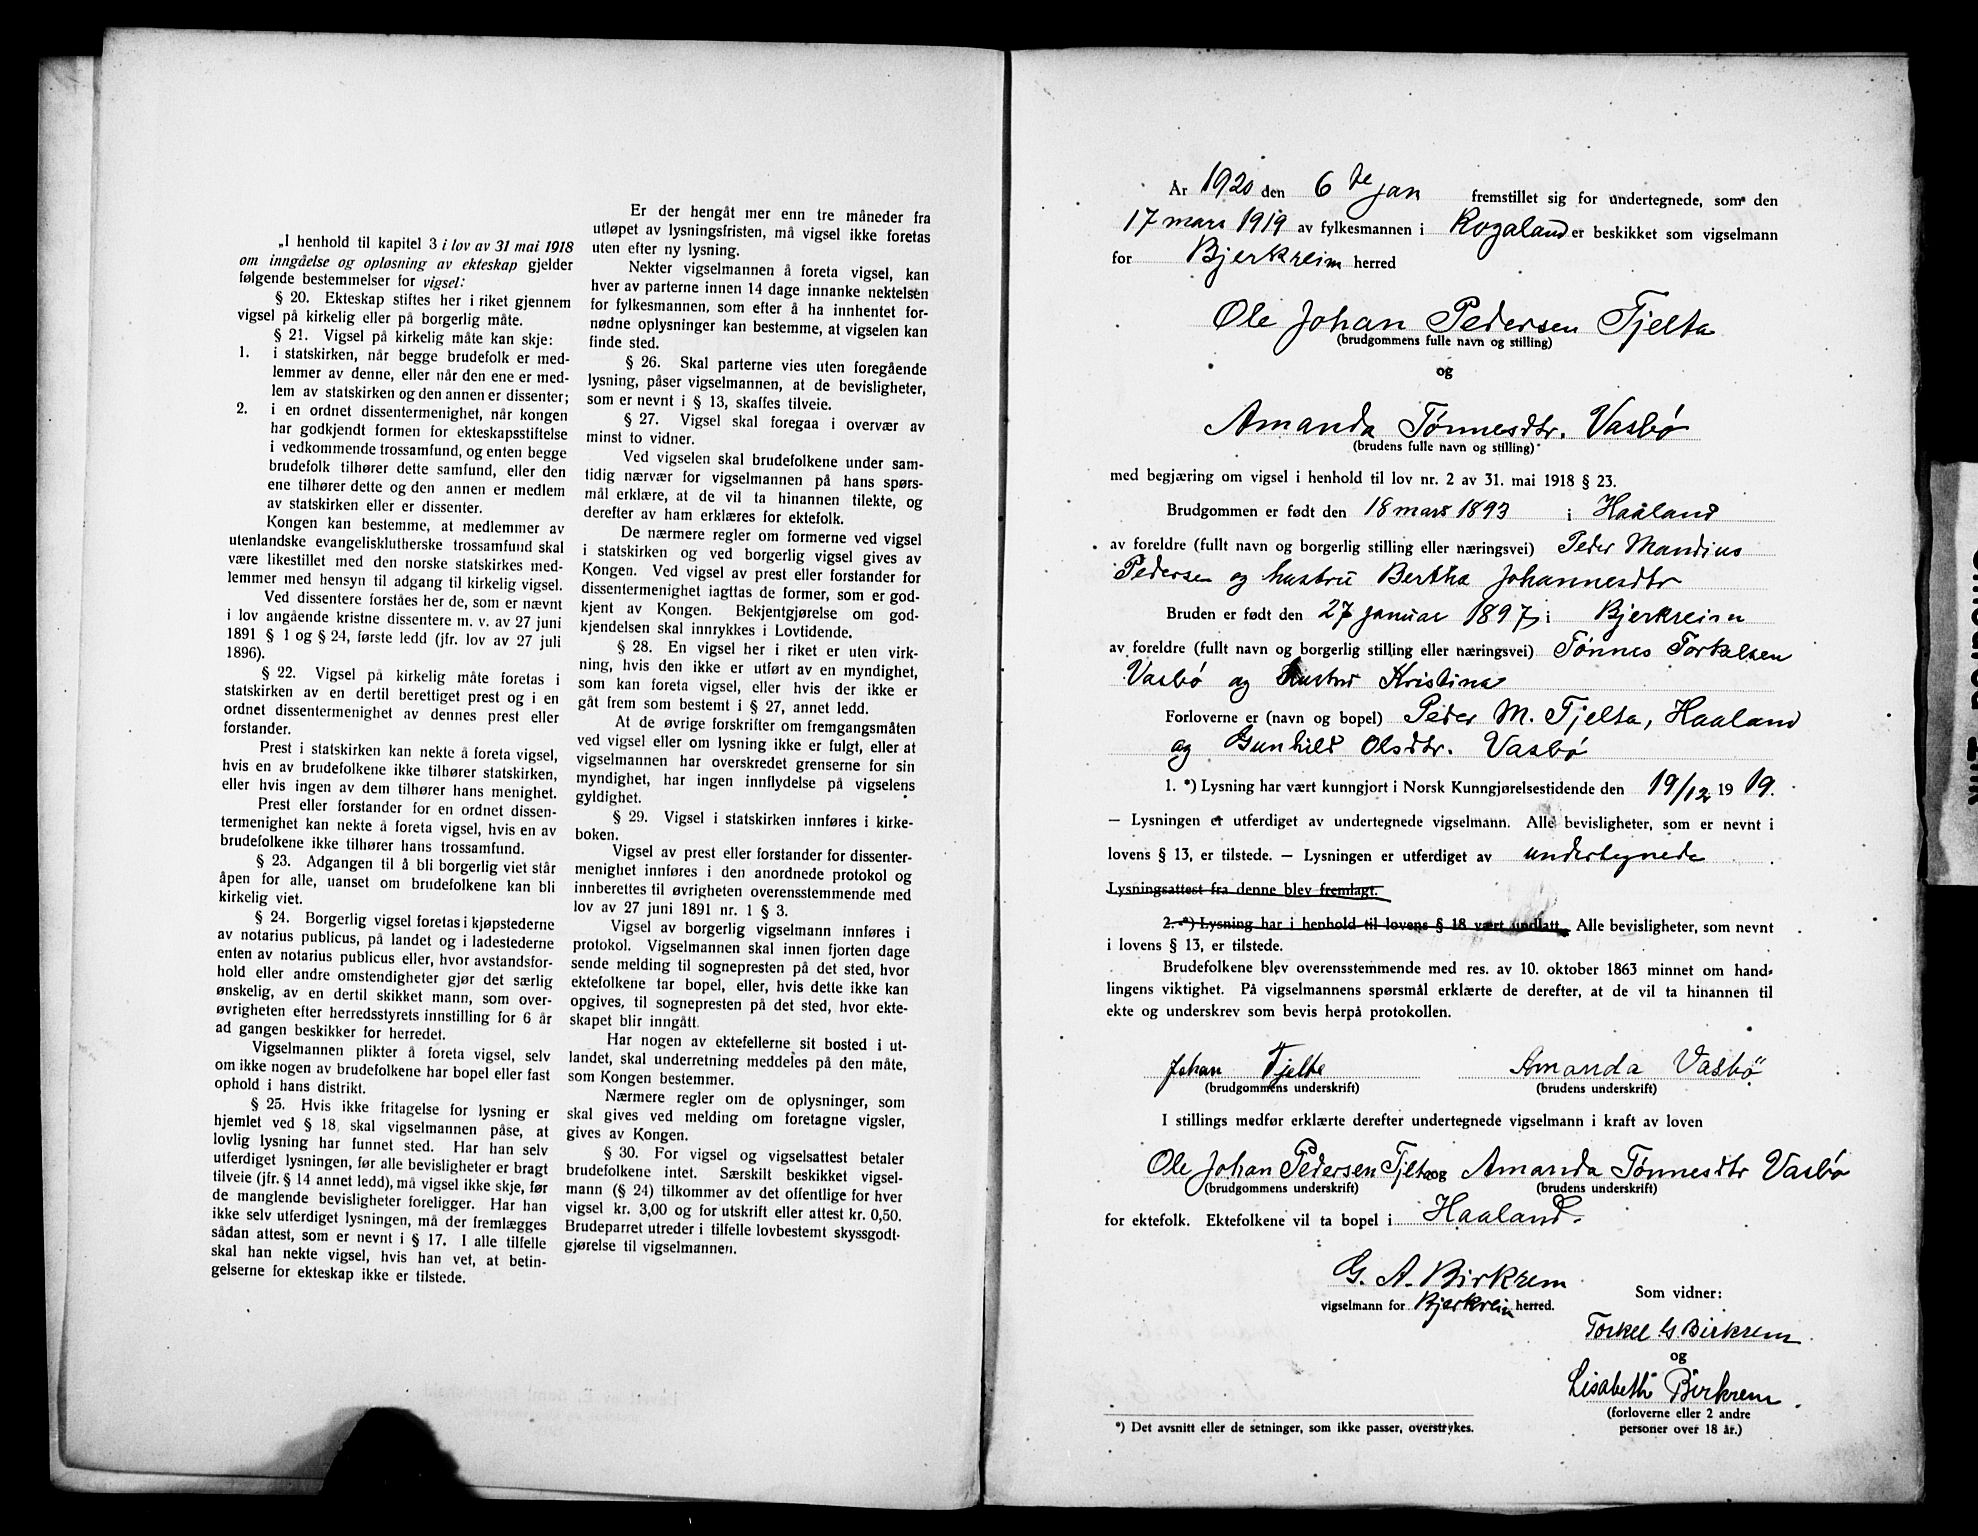 „I henhold til kapitel 3 i lov av 31 mai 1918
om inngåelse og opløsning av ekteskap gjelder
følgende bestemmelser for vigsel:
§ 20. Ekteskap stiftes her i riket gjennem
vigsel på kirkelig eller på borgerlig måte.
§ 21. Vigsel på kirkelig måte kan skje:
1. i statskirken, når begge brudefolk er med-
lemmer av denne, eller når den ene er med-
lem av statskirken og den annen er dissenter;
2. i en ordnet dissentermenighet, når kongen
har godkjendt formen for ekteskapsstiftelse
i vedkommende trossamfund, og enten begge
brudefolk tilhører dette samfund, eller den
ene tilhører dette og den annen er medlem
av statskirken eller er dissenter.
Kongen kan bestemme, at medlemmer av
utenlandske evangelisklutherske trossamfund skal
være likestillet med den norske statskirkes med-
lemmer med hensyn til adgang til kirkelig vigsel.
Ved dissentere forståes her de, som er nævnt
i lov angående kristne dissentere m. v. av 27 juni
1891 § 1 og § 24, første ledd (jfr. lov av 27 juli
1896).
§ 22. Vigsel på kirkelig måte foretas i
statskirken av en dertil berettiget prest og i en
ordnet dissentermenighet av dennes prest eller
forstander.
Prest i statskirken kan nekte å foreta vigsel,
hvis en av brudefolkene ikke tilhører statskirken,
eller hvis ingen av dem tilhører hans menighet.
Prest eller forstander for en ordnet dissen-
termenighet kan nekte å foreta vigsel, hvis en av
brudefolkene ikke tilhører hans trossamfund.
§ 23. Adgangen til å bli borgerlig viet står
åpen for alle, uanset om brudefolkene kan bli
kirkelig viet.
§ 24. Borgerlig vigsel foretas i kjøpstederne
av notarius publicus, på landet og i ladestederne
enten av notarius publicus eller, hvor avstandsfor-
hold eller andre omstendigheter gjør det særlig
ønskelig, av en dertil skikket mann, som over-
øvrigheten efter herredsstyrets innstilling for 6 år
ad gangen beskikker for herredet.
Vigselmannen plikter å foreta vigsel, selv
om ikke nogen av brudefolkene har bopel eller fast
ophold i hans distrikt.
§ 25. Hvis ikke fritagelse for lysning er
hjemlet ved § 18, skal vigselmannen påse, at
lovlig lysning har funnet sted. Har han selv
utferdiget lysningen, før alle bevisligheter er bragt
tilveie (jfr. § 14 annet ledd), må vigsel ikke skje, før
de manglende bevisligheter foreligger. Har han
ikke selv utferdiget lysningen, må der fremlægges
sådan attest, som er nevnt i § 17. I alle tilfelle
skal han nekte vigsel, hvis han vet, at betin-
gelserne for ekteskap ikke er tilstede.
Er der hengåt mer enn tre måneder fra
utløpet av lysningsfristen, må vigsel ikke foretas
uten efter ny lysning.
Nekter vigselmannen å foreta vigsel, kan
hver av parterne innen 14 dage innanke nektelsen
for fylkesmannen, som efter å ha innhentet for-
nødne oplysninger kan bestemme, at vigselen kan
finde sted.
§ 26. Skal parterne vies uten foregående
lysning, påser vigselmannen, at de bevisligheter,
som er nevnt i § 13, skaffes tilveie.
§ 27. Vigsel skal foregaa i overvær av
minst to vidner.
Ved vigselen skal brudefolkene under sam-
tidig nærvær for vigselmannen på hans spørs-
mål erklære, at de vil ta hinannen tilekte, og
derefter av ham erklæres for ektefolk.
De nærmere regler om formerne ved vigsel
i statskirken og ved borgerlig vigsel gives av
Kongen. Ved vigsel av prest eller forstander for
dissentermenighet iagttas de former, som er god-
kjent av Kongen. Bekjentgjørelse om god-
kjendelsen skal innrykkes i Lovtidende.
§ 28. En vigsel her i riket er uten virk-
ning, hvis den ikke er utført av en myndighet,
som kan foreta vigsel, eller hvis der ikke er
gåt frem som bestemt i § 27, annet ledd.
At de øvrige forskrifter om fremgangsmåten
ved vigsel eller om lysning ikke er fulgt, eller at
vigselmannen har overskredet grenserne for sin
myndighet, har ingen innflydelse på vigselens
gyldighet.
§ 29. Vigsel i statskirken innføres i kirke-
boken.
Vigsel av prest eller forstander for dissenter-
menighet innføres i den anordnede protokol og
innberettes til øvrigheten overensstemmende med
lov av 27 juni 1891 nr. 1 § 3.
Vigsel av borgerlig vigselmann innføres i
protokol. Vigselmannen skal innen fjorten dage
sende melding til sognepresten på det sted, hvor
ektefolkene tar bopel, eller, hvis dette ikke kan
opgives, til sognepresten på det sted, hvor ekte-
skapet blir inngått.
Har nogen av ektefellerne sit bosted i ut-
landet, skal underretning meddeles på den måte,
som Kongen bestemmer.
Nærmere regler om de oplysninger, som
skal gives ved melding om foretagne vigsler,
gives av Kongen.
§ 30. For vigsel og vigselsattest betaler
brudefolkene intet. Særskilt beskikket vigsel-
mann (§ 24) tilkommer av det offentlige for hver
vigsel kr. 3,00 og for utskrift eller attest kr. 0,50.
Brudeparret utreder i tilfelle lovbestemt skyssgodt-
gjørelse til vigselmannen.
År 1920 den 6 te jan fremstillet sig for undertegnede, som den
17 mars 1919 av fylkesmannen i Rogaland er beskikket som vigselmann
for Bjerkreim herred
Ole Johan Pedersen Tjelta
(brudgommens fulle navn og stilling)
og
Amanda Tønnesdtr. Vasbø
(brudens fulle navn og stilling)
med begjæring om vigsel i henhold til lov nr. 2 av 31. mai 1918 § 23.
Brudgommen er født den 18 mars 1893 i Haaland
av foreldre (fullt navn og borgerlig stilling eller næringsvei) Peder Mandius
Pedersen og hustru Bertha Johannesdtr
Bruden er født den 27 januar 1897 i Bjerkreim
av foreldre (fullt navn og borgerlig stilling eller næringsvei) Tønnes Torkelsen
Vasbø og hustru Kristina
Forloverne er (navn og bopel) Peder M. Tjelta, Haaland
og Gunhild Olsdtr. Vasbø
1. *) Lysning har vært kunngjort i Norsk Kunngjørelsestidende den 19/12 1919.
— Lysningen er utferdiget av undertegnede vigselmann. Alle bevisligheter, som er nevnt i
lovens § 13, er tilstede. — Lysningen er utferdiget av undertegnede
Lysningsattest fra denne blev fremlagt.
2. *) Lysning har i henhold til lovens § 18 vært undlatt. Alle bevisligheter, som nevnt
i lovens § 13, er tilstede.
Brudefolkene blev overensstemmende med res. av 10. oktober 1863 minnet om hand-
lingens viktighet. På vigselmannens spørsmål erklærte de derefter, at de vil ta hinannen til
ekte og underskrev som bevis herpå protokollen.
Johan Tjelta Amanda Vasbø
(brudgommens underskrift) (brudens underskrift)
I stillings medfør erklærte derefter undertegnede vigselmann i kraft av loven
Ole Johan Pedersen Tjelta og Amanda Tønnesdtr Vasbø
(brudgommens underskrift) (brudens underskrift)
for ektefolk. Ektefolkene vil ta bopel i Haaland.
G. A. Birkrem
vigselmann for Bjerkreim herred.
Som vidner:
Torkel G Birkrem
og
Lisabeth Birkrem.
(forloverne eller 2 andre
personer over 18 år.)
*) Det avsnitt eller de setninger, som ikke passer, overstrykes.